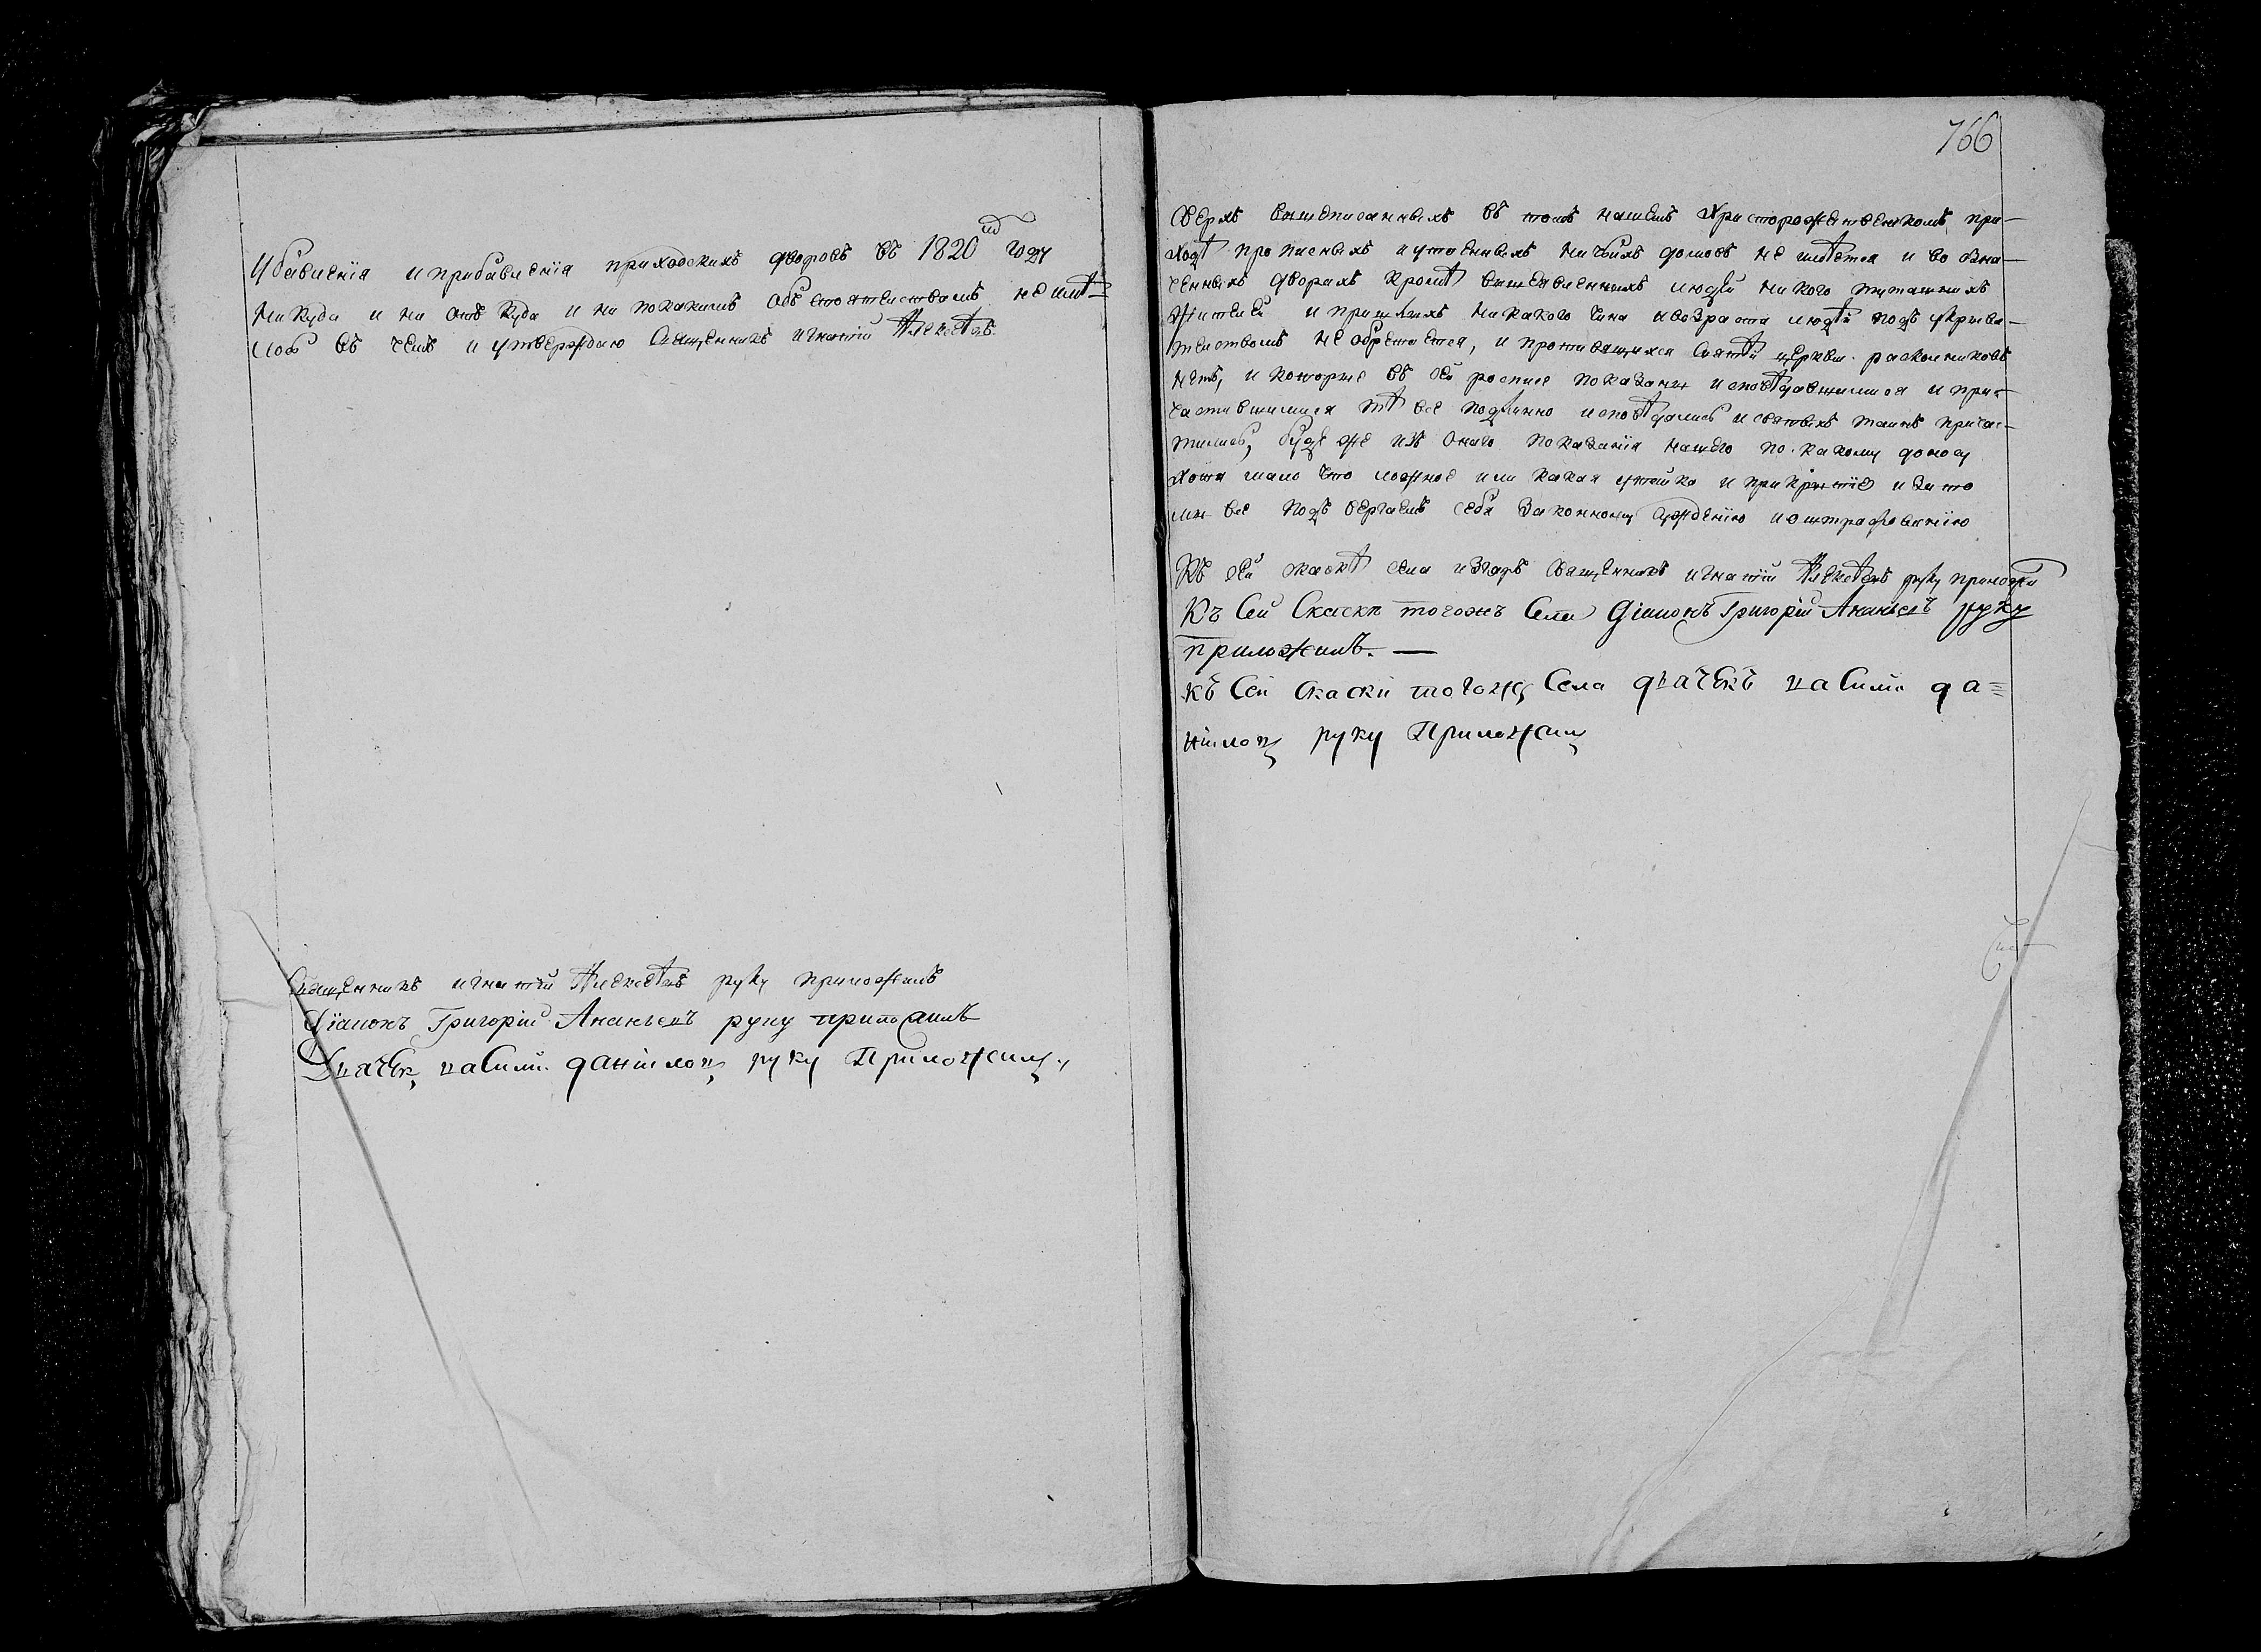 Убавления и прибавления приходскихъ дворовъ въ 1820м году
ни куда и ни отъ куда и ни по какимъ обстоятельствамъ не имѣ-
лось въ чемъ и утверждаю Священникъ игнатїй Алексѣевъ
Священникъ игнатїй Алексѣевъ руку приложилъ
Дїаконъ Григорїй Ананьевъ руку приложилъ
Дьячек василий данїлов руку Приложил
766
Сверхъ вышеписанныхъ въ томъ нашемъ Христорождественскомъ при-
ходѣ прописныхъ и утаенныхъ ничьихъ домовъ не имѣется и во озна-
ченныхъ дворахъ кромѣ вышеявленныхъ людей никого тутошнихъ
жителей и пришлыхъ никакого чина и возраста людей подъ укрыва-
тельствомъ не обретается, и противящихся Святѣй церкви раскольниковъ
нетъ, и которые въ сей росписе показаны исповѣдавшимися и при-
частившимися тѣ все подлинно исповѣдались и святыхъ таинъ причас-
тились, буде же изъ онаго показанїя нашего по какому доносу
хотя мало что ложное или какая утайка и прикрытїе и за то
мы все подъ вергаемъ себя законному суждению и оштрафованїю
Къ сей скаскѣ села священникъ игнатїй Алексѣевъ руку приложи
Къ Сей Скаски тогожъ Села Дїаконъ Григорїй Ананьевъ руку
приложилъ. —
къ Сей скаски тогож Села дьячекъ василий да=
нїлов руку Приложил